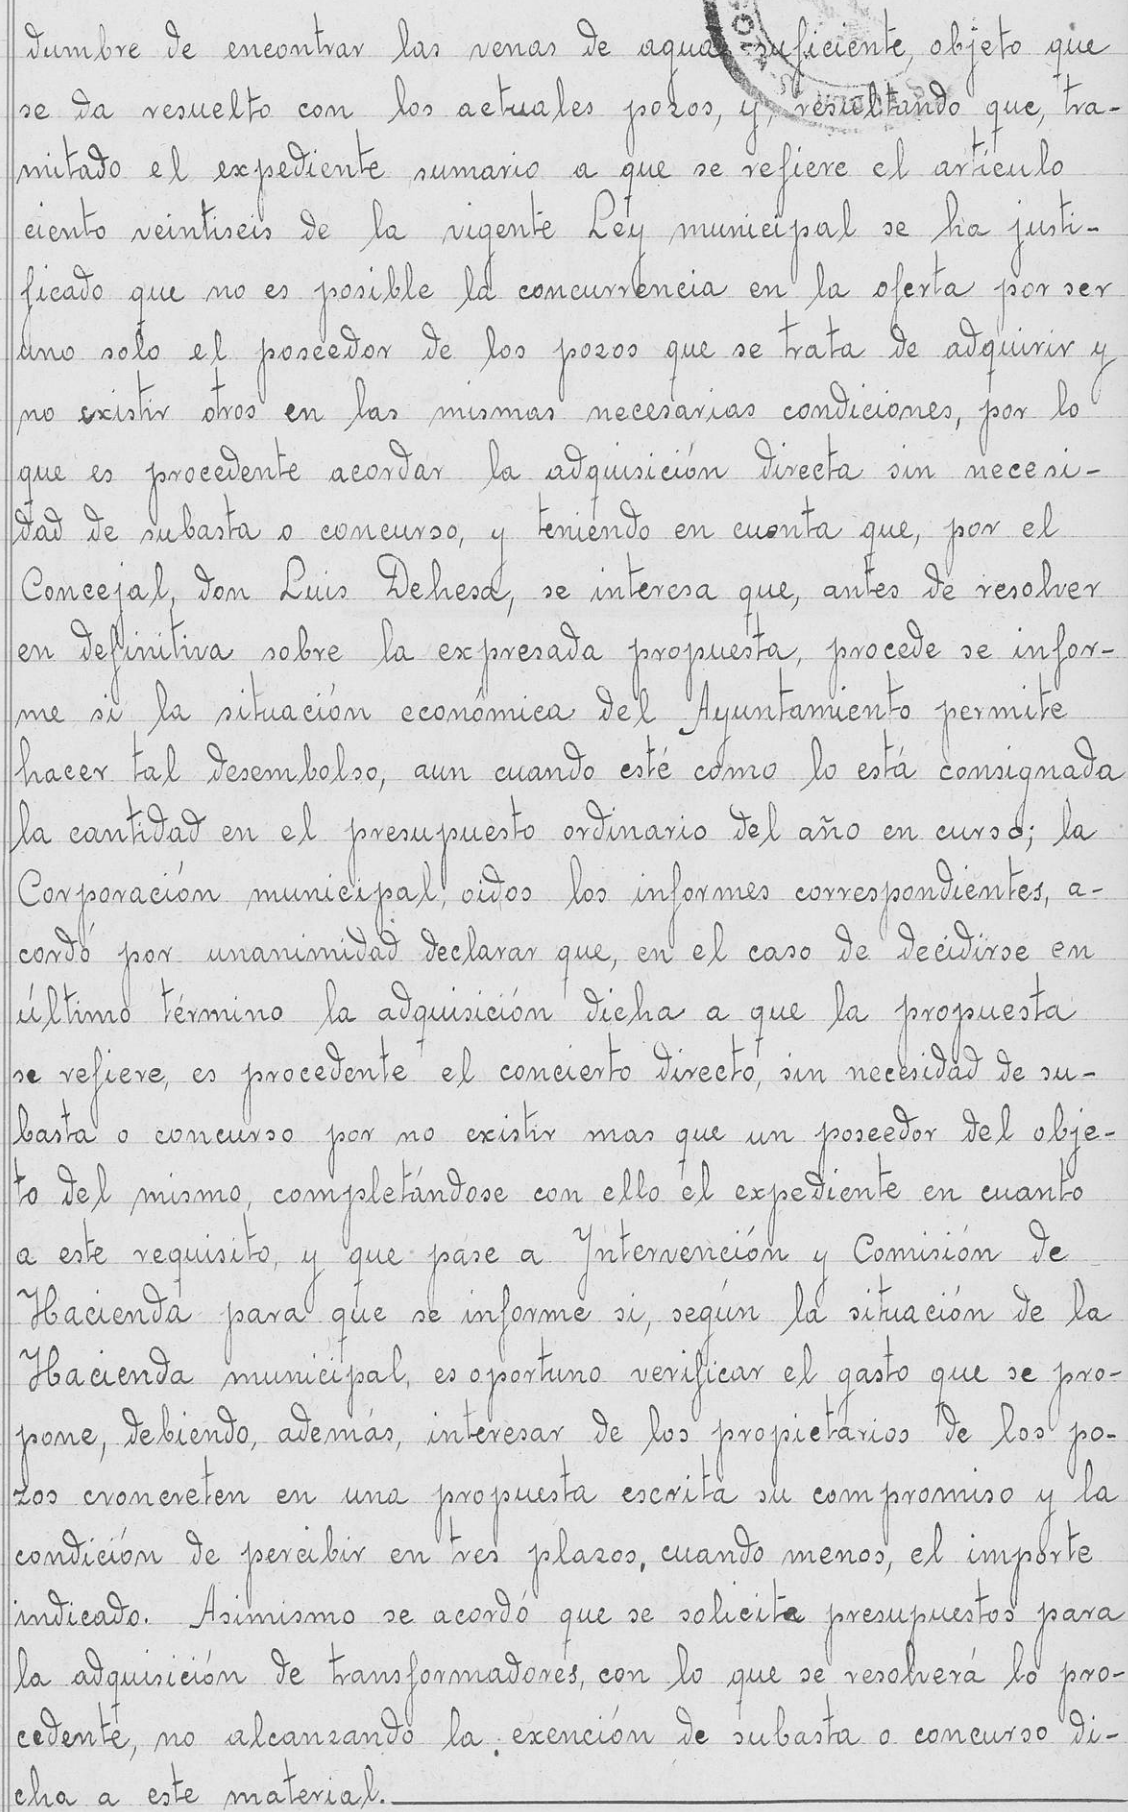 dumbre de encontrar las venas de aguas suficiente, objeto que
se da resuelto con los actuales pozos, y, resultando que, tra-
mitado el expediente sumario a que se refiere el artículo
ciento veintiseis de la vigente Ley municipal se ha justi-
ficado que no es posible la concurrencia en la oferta por ser
uno solo el poseedor de los pozos que se trata de adquirir y
no existir otros en las mismas necesarias condiciones, por lo
que es procedente acordar la adquisición directa sin necesi-
dad de subasta o concurso, y teniendo en cuenta que, por el
Concejal, don Luis Dehesa, se interesa que, antes de resolver
en definitiva sobre la expresada propuesta, procede se infor-
me si la situación económica del Ayuntamiento permite
hacer tal desembolso, aun cuando esté como lo está consignada
la cantidad en el presupuesto ordinario del año en curso; la
Corporación municipal, oidos los informes correspondientes, a-
cordó por unanimidad declarar que, en el caso de decidirse en
último término la adquisición dicha a que la propuesta
se refiere, es procedente el concierto directo, sin necesidad de su-
basta o concurso por no existir mas que un poseedor del obje-
to del mismo, completándose con ello el expediente en cuanto
a este requisito, y que pase a Intervención y Comisión de
Hacienda para que se informe si, según la situación de la
Hacienda municipal, es oportuno verificar el gasto que se pro-
pone, debiendo, además, interesar de los propietarios de los po-
zos croncreten en una propuesta escrita su compromiso y la
condición de percibir en tres plazos, cuando menos, el importe
indicado. Asimismo se acordó que se solicite presupuestos para
la adquisición de transformadores, con lo que se resolverá lo pro-
cedente, no alcanzando la exención de subasta o concurso di-
cha a este material.